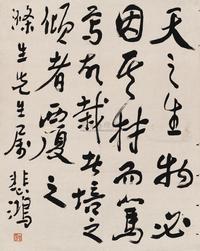 天之生物必
因其材而篤
焉故栽者培之
傾者覆之
滌生先生屬
悲鴻